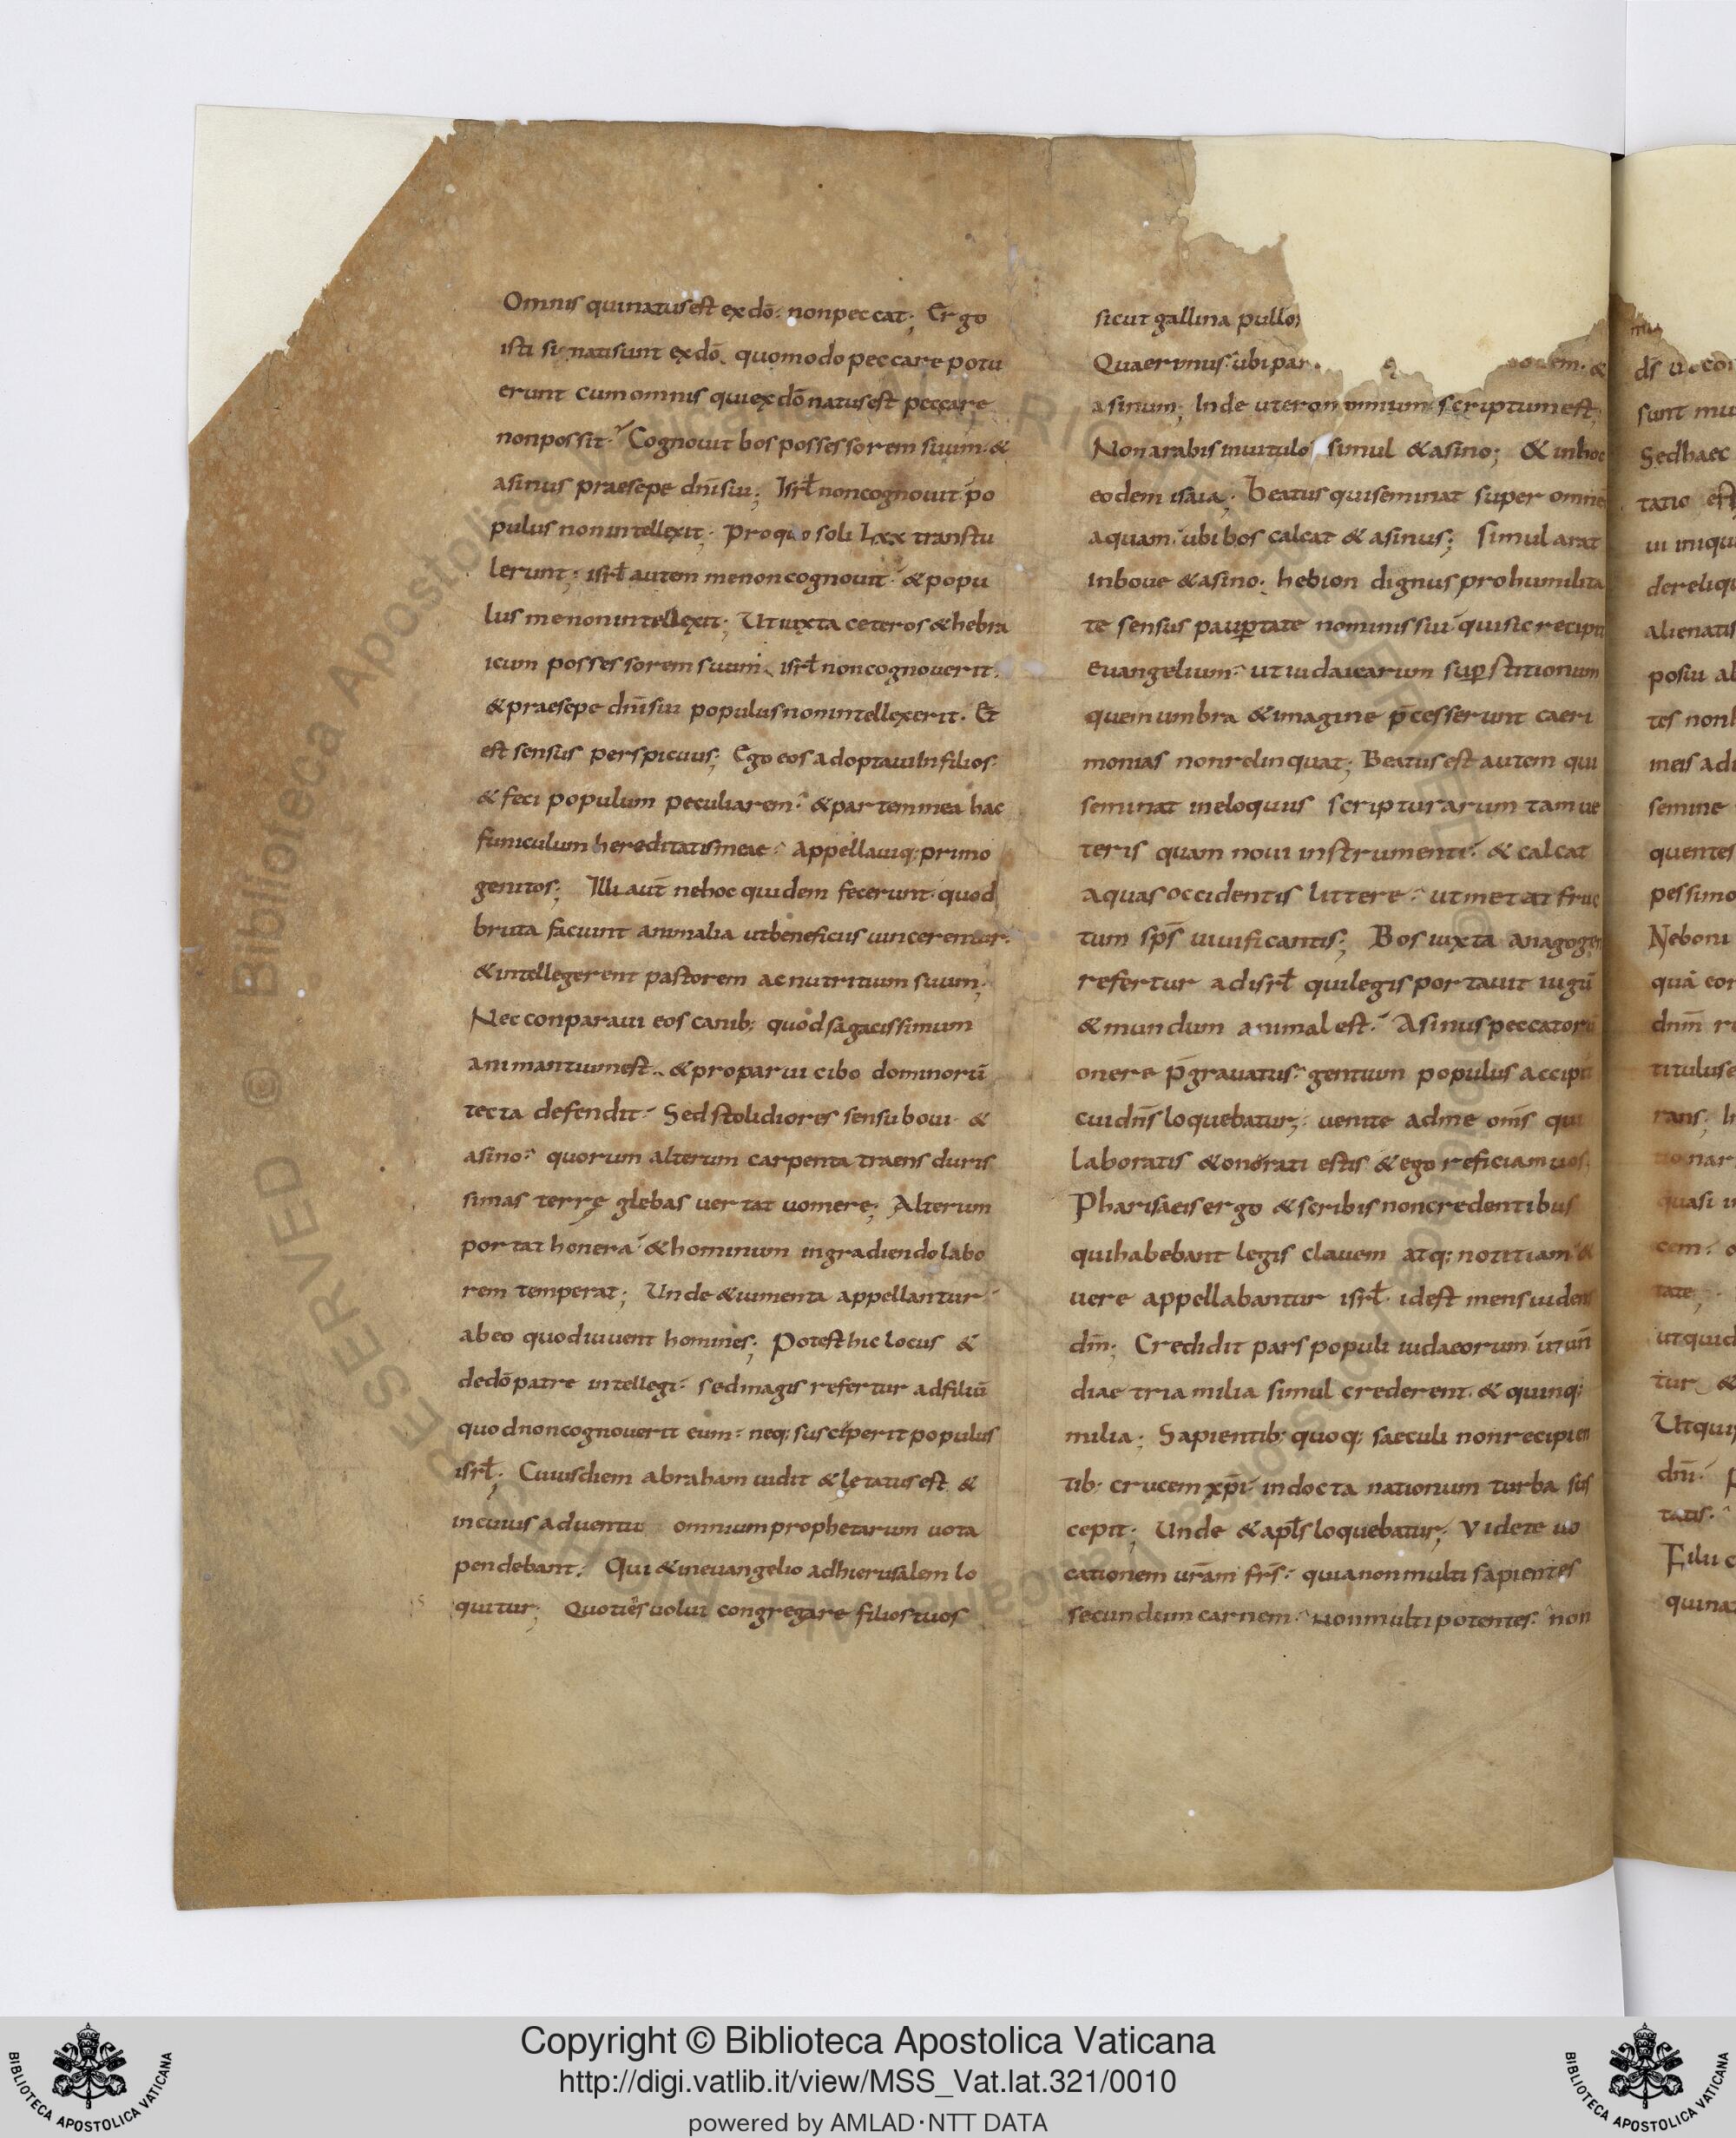 Omnis qui natus est ex dō. non peccat; Ergo
isti si nati sunt ex dō. quomodo peccare potu
erunt cum omnis qui ex dō natus est peccare
non possit. Cognouit bos possessorem suum. &
asinus praesepe dnī sui; Isrł non cognouit po
pulus non intellexit; Pro quo soli Lxx transtu
lerunt; isrł autem me non cognouit. & popu
lus me non intellexit; Ut iuxta ceteros & hebra
icum possessorem suum. isrł non cognouerit.
& praesepe dnī sui populus non intellexerit. Et
est sensus perspicuus; Ego eos adoptaui in filios.
& feci populum peculiarem. & partem mea hac
funiculum hereditatis meae. Appellauiq; primo
genitos; Illi aut̄ ne hoc quidem fecerunt. quod
bruta faciunt animalia ut beneficiis uincerentur.
& intellegerent pastorem ac nutritium suum;
Nec conparaui eos canib; quod sagacissimum
animantium est. & pro parui cibo dominorū
tecta defendit. Sed stolidiores sensu boui &
asino. quorum alterum carpenta traens duris
simas terrę glebas uertat uomere; Alterum
portat honera & hominum in gradiendo labo
rem temperat; Unde & iumenta appellantur.
ab eo quod iuuent homines; Potest hic locus &
de dō patre intellegi. sed magis refertur ad filiū
quod non cognouerit eum. neq; susceperit populus
isrł; Cuius diem abraham uidit & lętatus est &
in cuius aduentu omnium prophetarum uota
pendebant. Qui & in euangelio ad hierusalem lo
quitur; Quotiēs uolui congregare filios tuos
sicut gallina pullos
Quaerimus ubi par em. &
asinum; Inde uteronomium scriptum est;
Non arabis in uitulo simul & asino; & in hoc
eodem isaia; Beatus qui seminat super omne
aquam. ubi bos calcat & asinus; Simul arat
in boue & asino. hebion dignus pro humilita
te sensus paup̄tate nominis sui qui sic recipit
euangelium. ut iudaicarum sup̄stitionum
quem umbra & imagine p̄cesserunt caeri
monias non relinquat; Beatus est autem qui
seminat in eloquiis scripturarum tam ue
teris quam noui instrumenti. & calcat
aquas occidentis littere. ut metat fruc
tum sp̄s uiuificantis; Bos iuxta anagogen
refertur ad isrł qui legis portauit iugū
& mundum animal est. Asinus peccatorū
onere p̄grauatus. gentium populus accipit
cui dn̄s loquebatur; uenite ad me om̄s qui
laboratis & onerati estis & ego reficiam uos.
Pharisaeis ergo & scribis non credentibus
qui habebant legis clauem atq; notitiam &
uere appellabantur isrł. id est mens uidens
dm̄; Credidit pars populi iudaeorum ut un̄
diae tria milia simul crederent. & quinq;
milia; Sapientib; quoq; saeculi non recipien
tib; crucem xp̄i indocta nationum turba sus
cepit; Unde & apłs loquebatur; Videte uo
cationem ur̄am fr̄s. quia non multi sapientes
secundum carnem. non multi potentes. non
Sedhaec
Copyright © Biblioteca Apostolica Vaticana
http://digi.vatlib.it/view/MSS_Vat.lat.321/0010
powered by AMLAD·NTT DATA
BIBLIOTECA APOSTOLICA VATICANA
BIBLIOTECA APOSTOLICA VATICANA